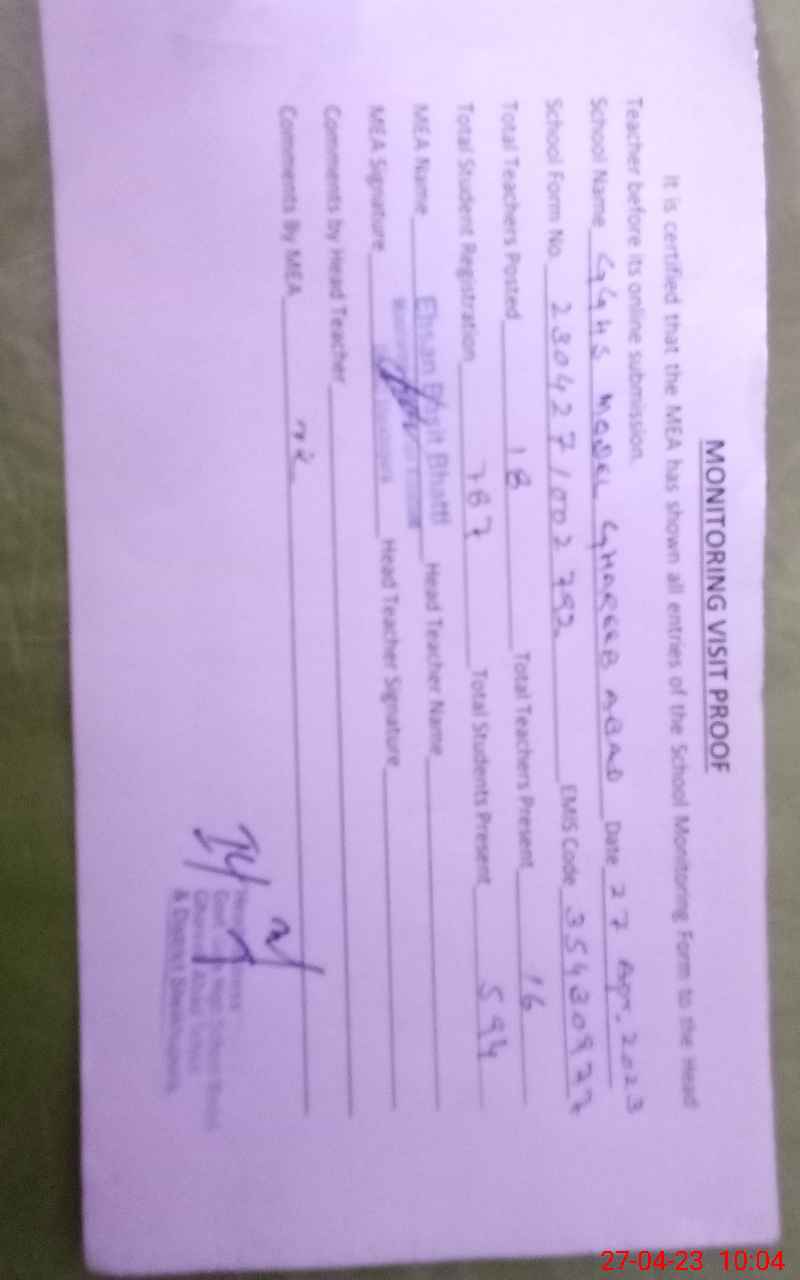 MONITORING VISIT PROOF
It is certified that the MEA has shown all entries of the School Monitoring Form to the Head
Teacher before its online submission.
School Name GGHS MODEL GHAREEB ABAD Date 27 Apr. 2023
School Form No. 2304271002792 EMIS Code 35430977
Total Teachers Posted 18 Total Teachers Present 16
Total Student Registration 787 Total Students Present 594
MEA Name Ehsan Basit Bhatti Head Teacher Name
MEA Signature Head Teacher Signature
Comments by Head Teacher
Comments By MEA
& District Sheikhupura
27-04-23 10:04